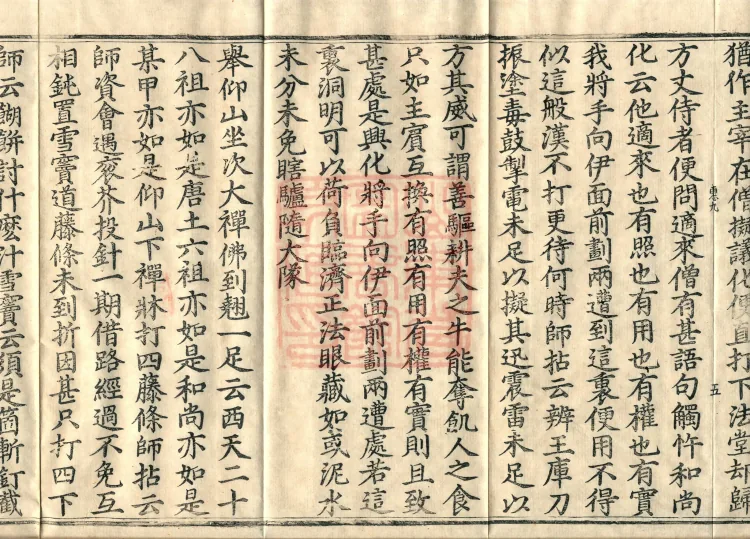 猶作主宰在僧擬議化便直打下法堂却歸
方丈侍者便問適來僧有甚語句觸忤和尚
化云他適來也有照也有用也有權也有實
我將手向伊面前劃兩遭到這裏便用不得
似這般漢不打更待何時師拈云辨王庫刀
振塗毒鼓掣電未足以擬其迅震雷未足以
方其威可謂善驅耕夫之牛能奪飢人之食
只如主賓互換有照有用有權有實則且致
甚處是興化將手向伊面前劃兩遭處若這
裏洞明可以荷負臨濟正法眼藏如或泥水
未分未免瞎驢隨大隊
舉仰山坐次大禪佛到翹一足云西天二十
八祖亦如是唐土六祖亦如是和尚亦如是
某甲亦如是仰山下禪牀打四藤條師拈云
師資會遇裦芥投針一期借路經過不免互
相鈍置雪竇道藤條未到折因甚只打四下
師云餬餅討什麽汁雪竇云須是箇斬釘截
五